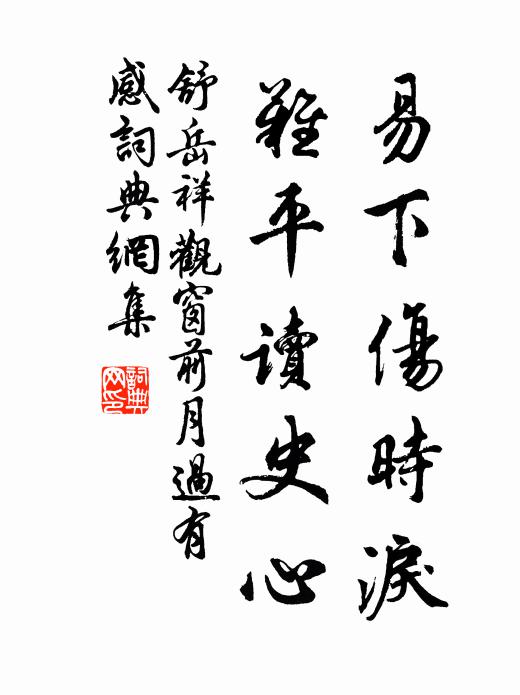 易下傷時淚
難平讀史心
舒岳祥觀窗前月過有
感詞典網集
詞典網印